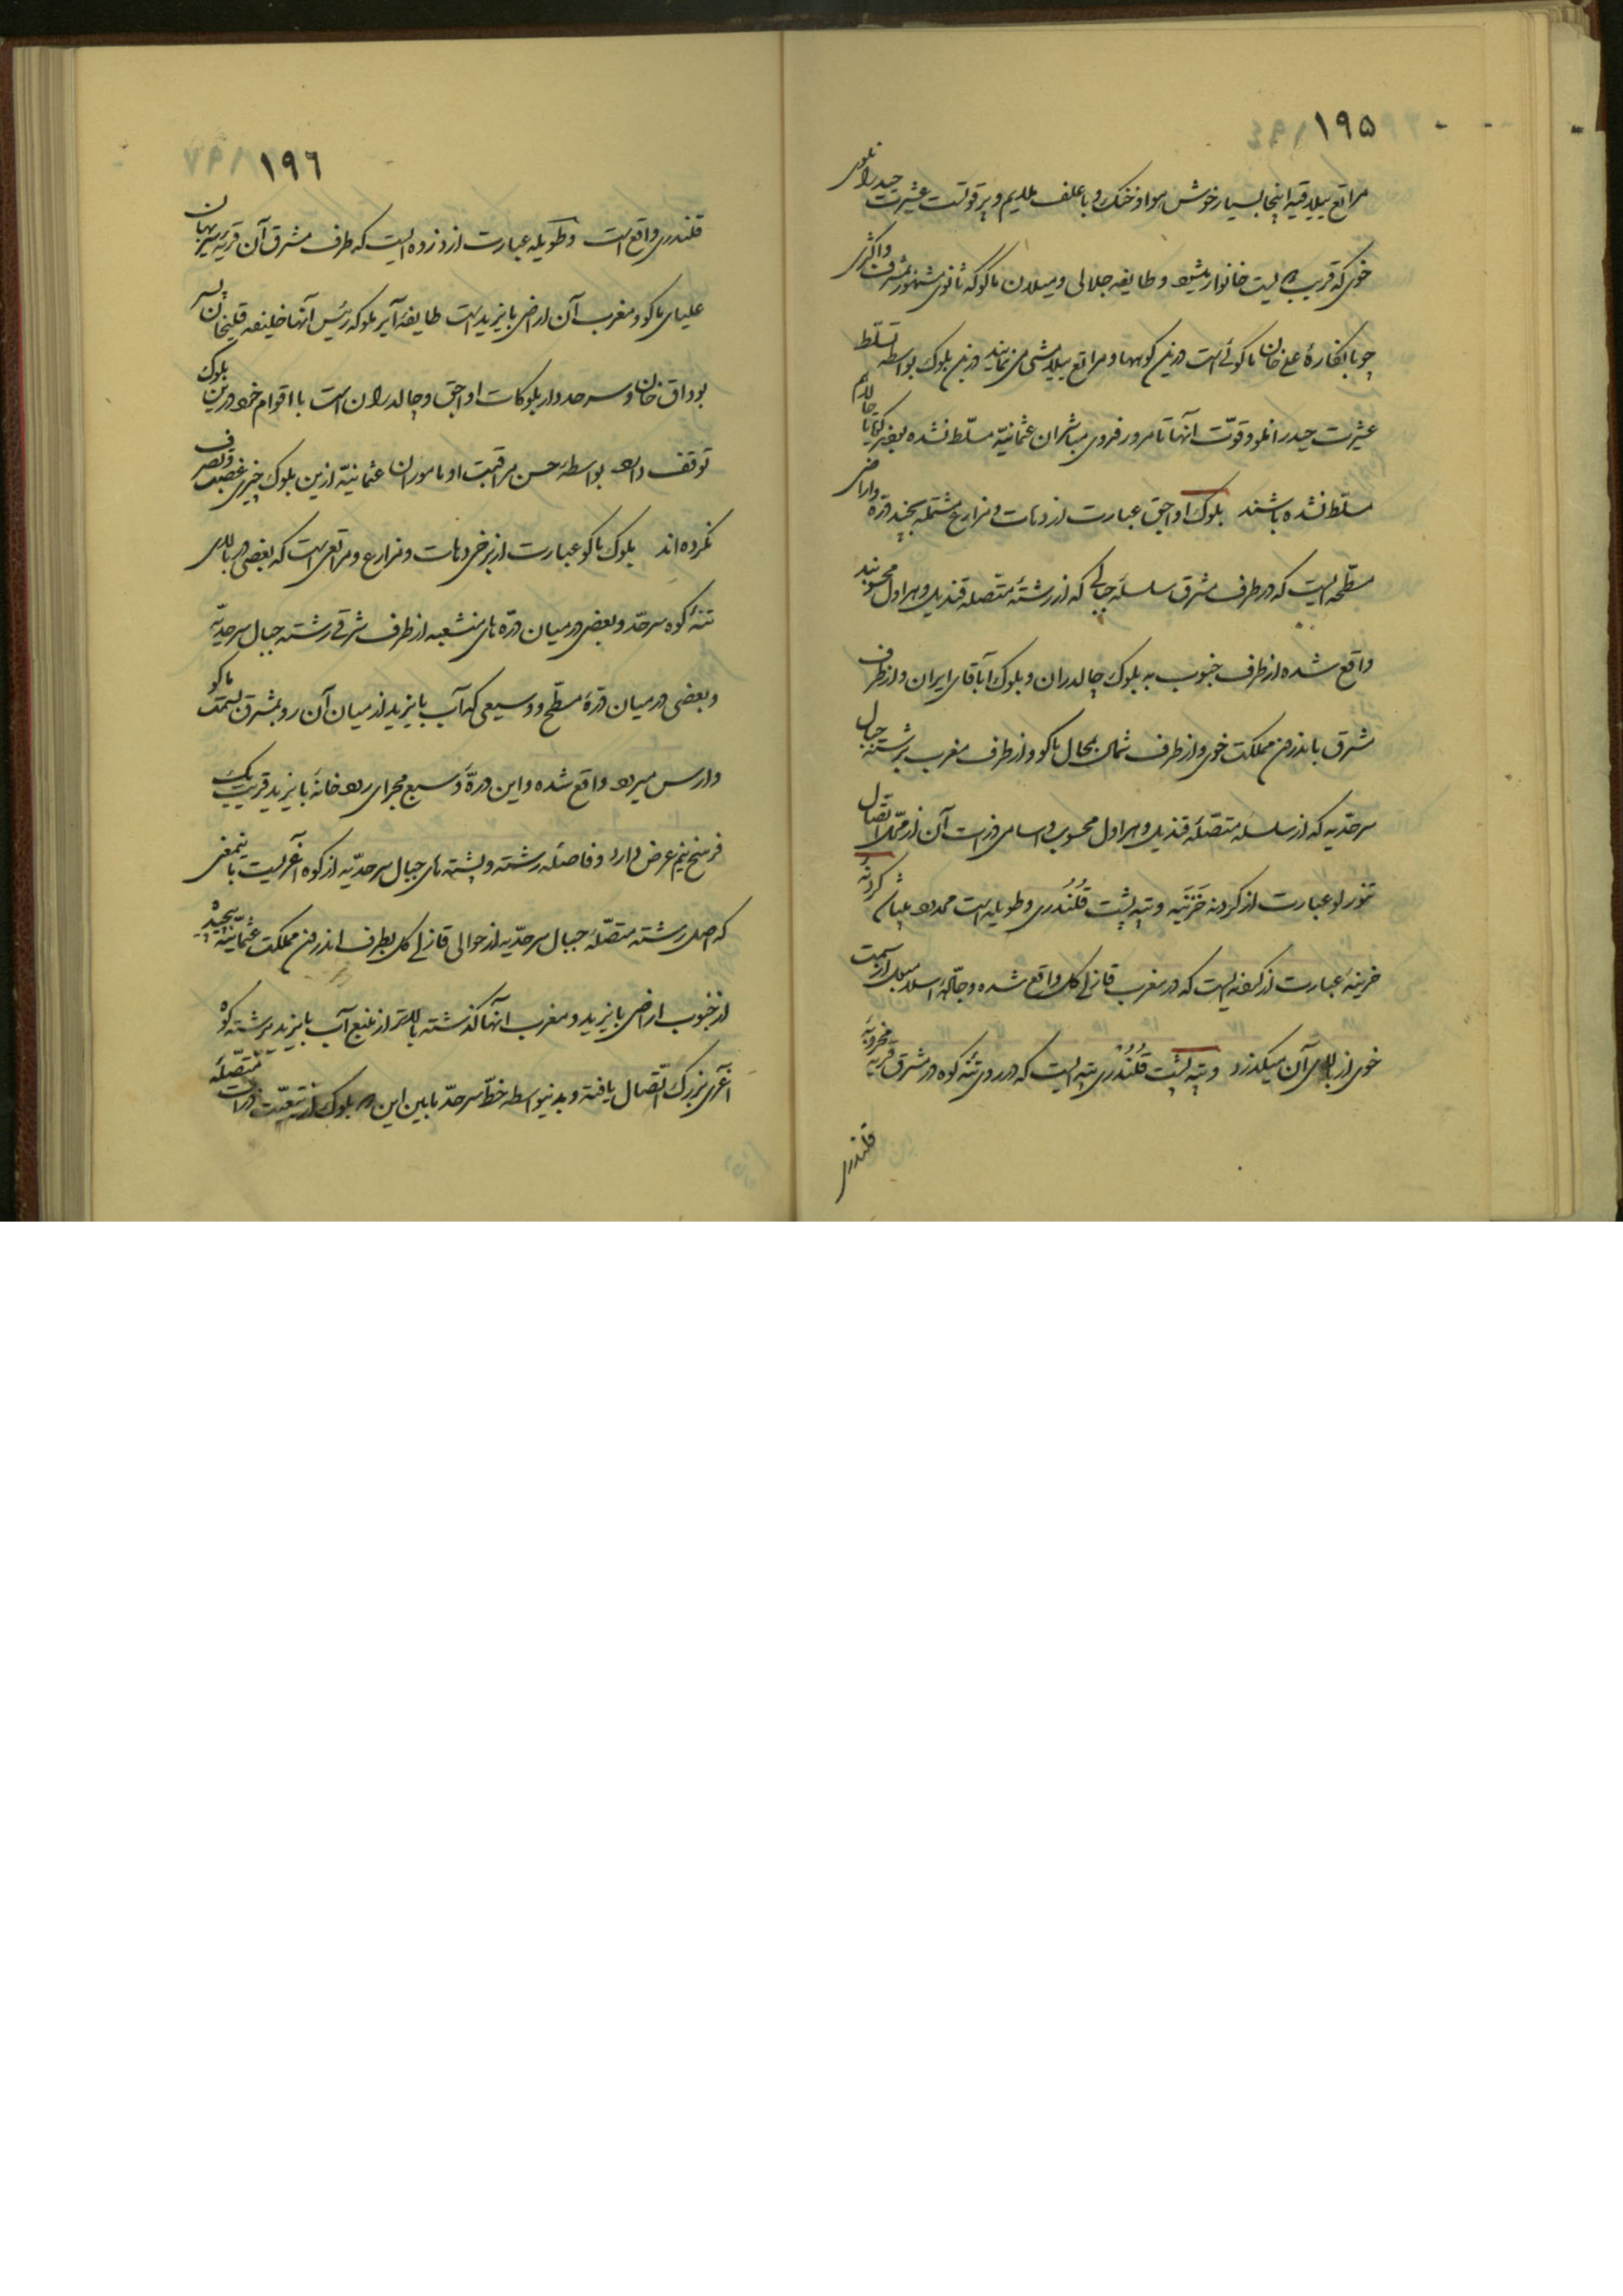 ۱۹۵
مراتع ییلاقیه اینجا بسیار خوش هوا و خنک و با علف ملایم و پر قوتست عشیرت حیدرانلوی
خوی که قریب دویست خانوار میشود و طایفه جلالی و میلان ماکو که ثانوی مشهور بشرف و اکثری
علی خان ماکوئی است درین کوهها و مراتع ییلامشی می نمایند درین بلوک بواسطه تسلط
عشیرت حیدرانلو و قوّت آنها تا مرور فروی مباشران عثمانیّه مسلّط نشده بغیر
مسلّط نشده باشند بلوک اواجق عبارت از دهات و مزارع مشتمله بچند درّه و اراضی
مسطّحه ایست که در طرف مشرق سلسله جبالی که از رشتهٔ متّصله قندیل و هراول محسوبند
واقع شده از طرف جنوب به بلوک چالدران و بلوک آباقای ایران و از طرف
مشرق باندرون مملکت خوی و از طرف شمال بمحال ماکو و از طرف مغرب برشته جبال
سرحدّیه که از سلسله متصّلهٔ قندیل و هراول محسوب و اسامی ذرات آن از محّل اتّصال
تنورلو عبارت از کردنه خَزینَه و تپه پشت قَلَندَری و طویله است محدود بپایان کردنه
خزینهٔ عبارت از کردنه ایست که در مغرب قازلی کل واقع شده و جادّهٔ اسلامبول از سمت
خوی از بالای آن میگذرد و تپه پشت قلندری تپه ایست که در روی تنه کوه در مشرق قریه مخروبهٔ
قلندری
۱۹٦
قلندری واقع است و طویله عبارت از ذروه ایست که طرف مشرق آن قریه
علیای ماکو و مغرب آن اراضی بایزید است طایفهٔ آیرملو که رئیس آنها خلیفه قلیخان پسر
بوداق خان و سرحددار بلوکات اواجق و چالدران است با اقوام خود درین بلوک
توقف دارد بواسطهٔ حسن مراقبت او مامورین عثمانیّه ازین بلوک چیزی غصب و تصرف
نکرده اند بلوک ماکو عبارت از برخی دهات و مزارع و مراتعی است که بعضی در بالای
تنهٔ کوه سرحّد و بعضی در میان درّه های منشعبه از طرف شرقی رشته جبال سرحدیّه
و بعضی در میان درّهٔ مسطّح و وسیعی که آب بایزید از میان آن رو بمشرق بسمت ماکو
و ارس میرود واقع شده و این درّهٔ وسیع مجرای رودخانهٔ بایزید قریب یک
فرسخ نیم عرض دارد و فاصله رشته و پشته های جبال سرحدّیه از کوه آغریست باینمعنی
که اصل رشته متصّلهٔ جبال سرحدّیه از حوالی قازلی کل بطرف اندرون مملکت عثمانیّه پیچیده
از جنوب اراضی بایزید و مغرب آنها گذشته بالاتر از منبع آب بایزید برشته کوه
آغری بزرک اتّصال یافته و بدینواسطه خطّ سرحدّ مابین این دو بلوک از تبعیّت ذرات متّصلهٔ